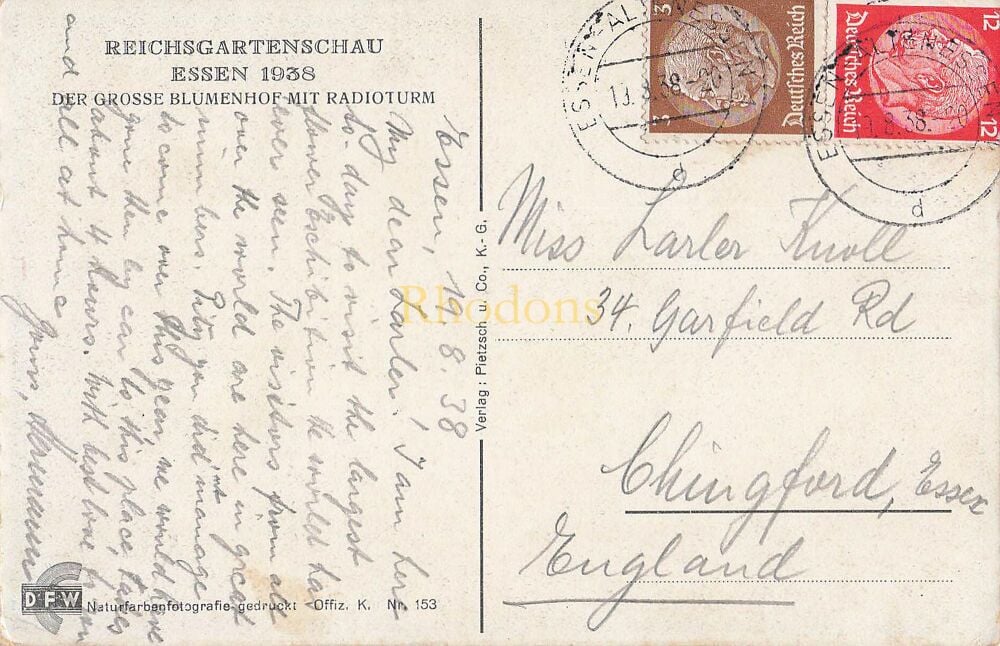 REICHSGARTENSCHAU
ESSEN 1938
DER GROSSE BLUMENHOF MIT RADIOTURM
Essen, 19. 8. 38
My dear Larler! I am here
to-day to visit the largest
flower Exchibition the world has
ever seen. The visitors from all
over the world are here in great
numbers. Pity you did'nt manage
to come over this year, we would have
gone then by car to this place, takes
about 4 hours. With best love to you
and all at home
Yours,
Verlag: Pietzsch u. Co., K.-G.
DFW
Naturfarbenfotografie gedruckt Offiz. K. Nr. 153
3
3
Deutsches Reich
12
12
Deutsches Reich
ESSEN-ALTENESSEN
19.8.38
d
ESSEN-ALTENESSEN
19.8.38
d
Miss Larler Knoll
34. Garfield Rd
Chingford, Essex
England
Rhodons